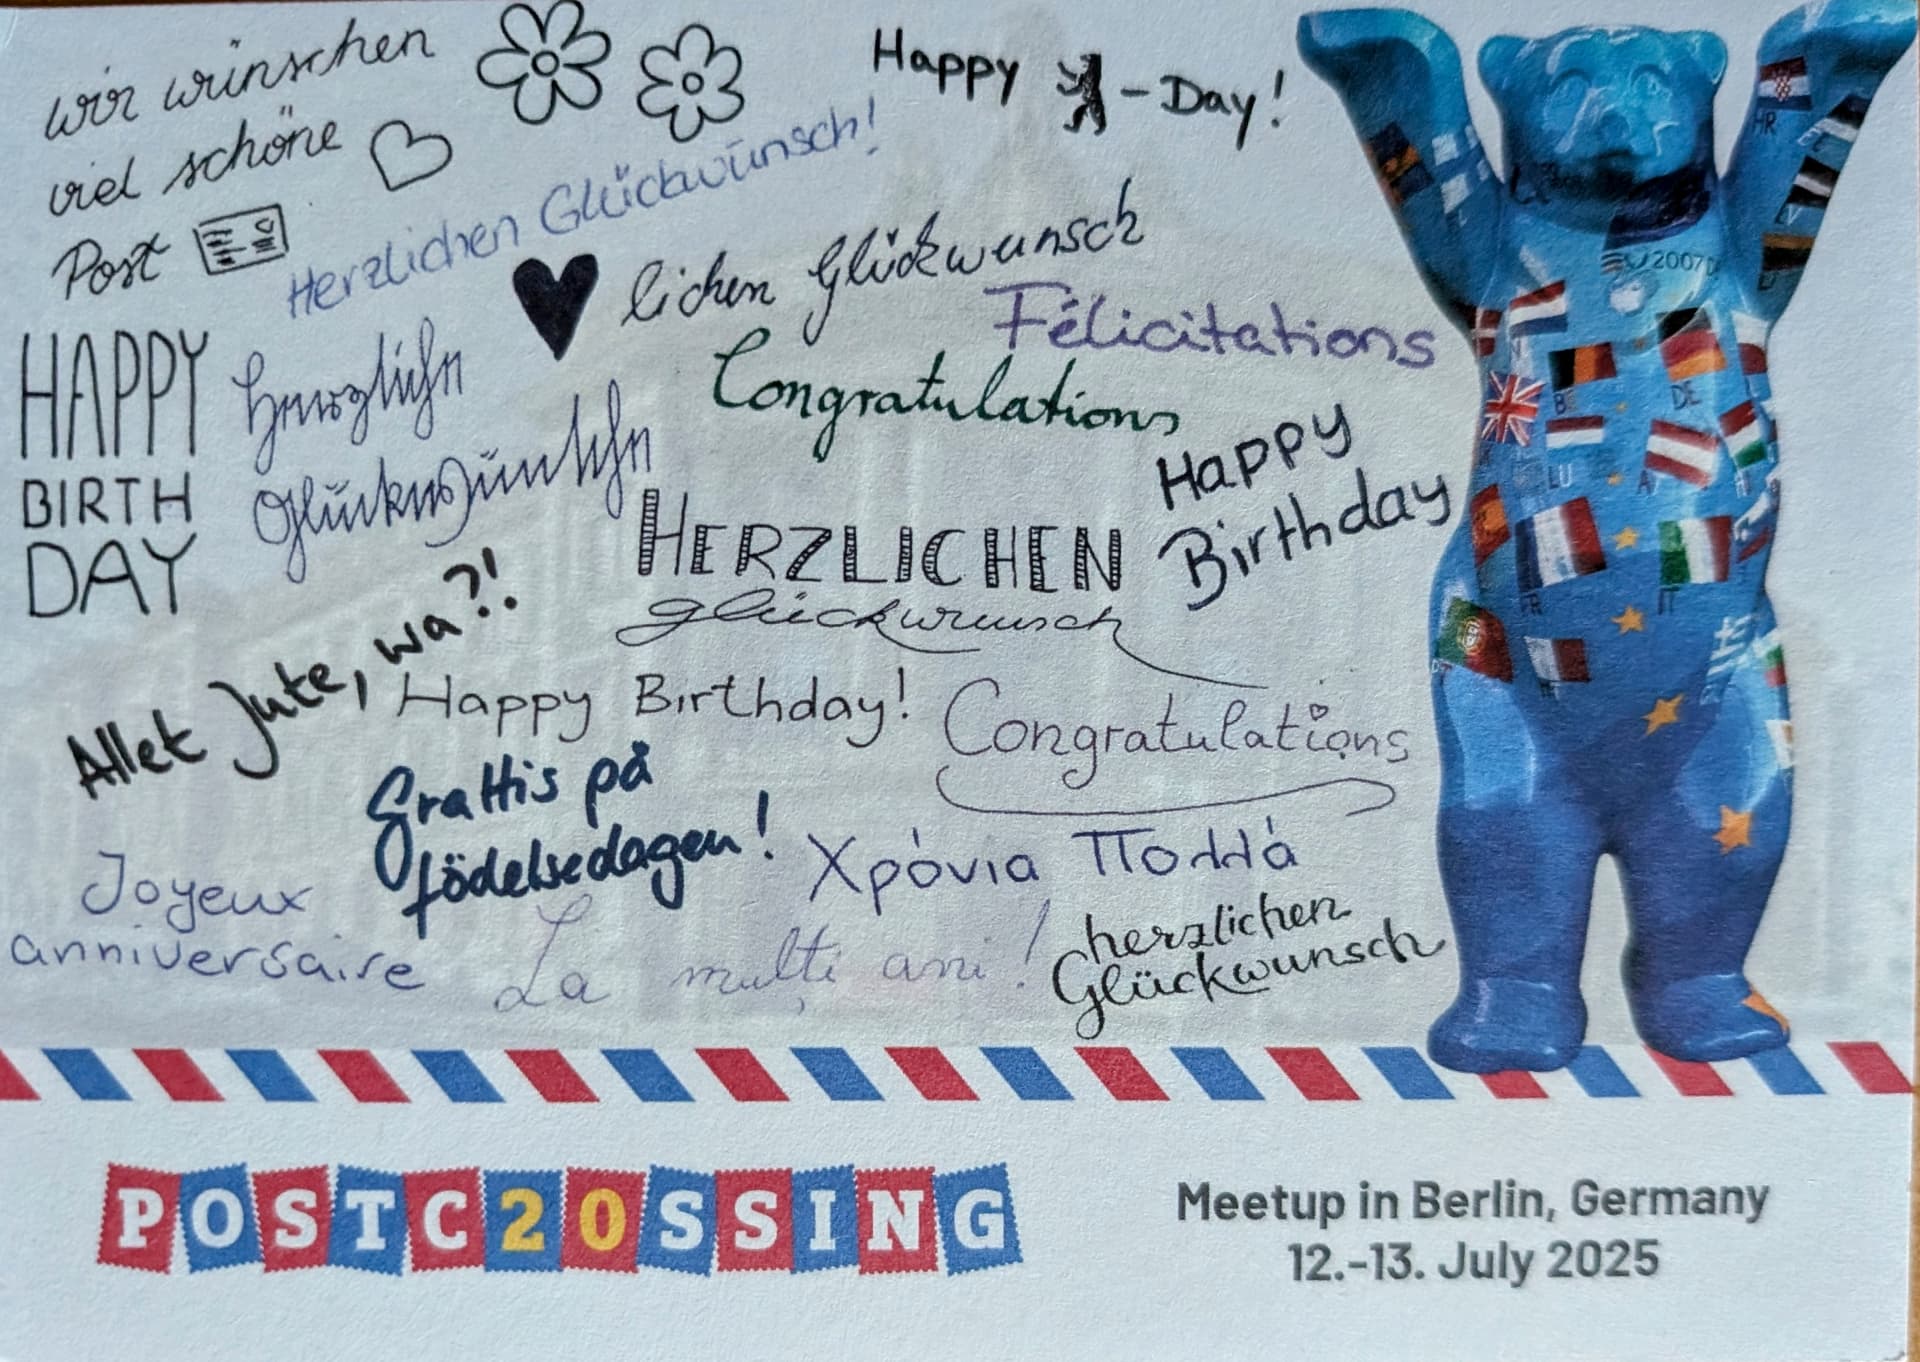 wir wünschen
viel schöne
Post
Happy -Day!
Herzlichen Glückwünsch!
lichen Glückwunsch
Félicitations
HAPPY
BIRTH
DAY
Herzlichen
Glückwünschen
Congratulations
Happy
Birthday
HERZLICHEN
glückwunsch
Allet Jute, wa?!
Happy Birthday!
Congratulations
Grattis på
födelsedagen!
Χρόνια Πολλά
Joyeux
anniversaire
La mulți ani!
herzlichen
Glückwunsch
HR
2007
DE
LU
A
FR
IT
PT
POSTC20SSING
Meetup in Berlin, Germany
12.-13. July 2025